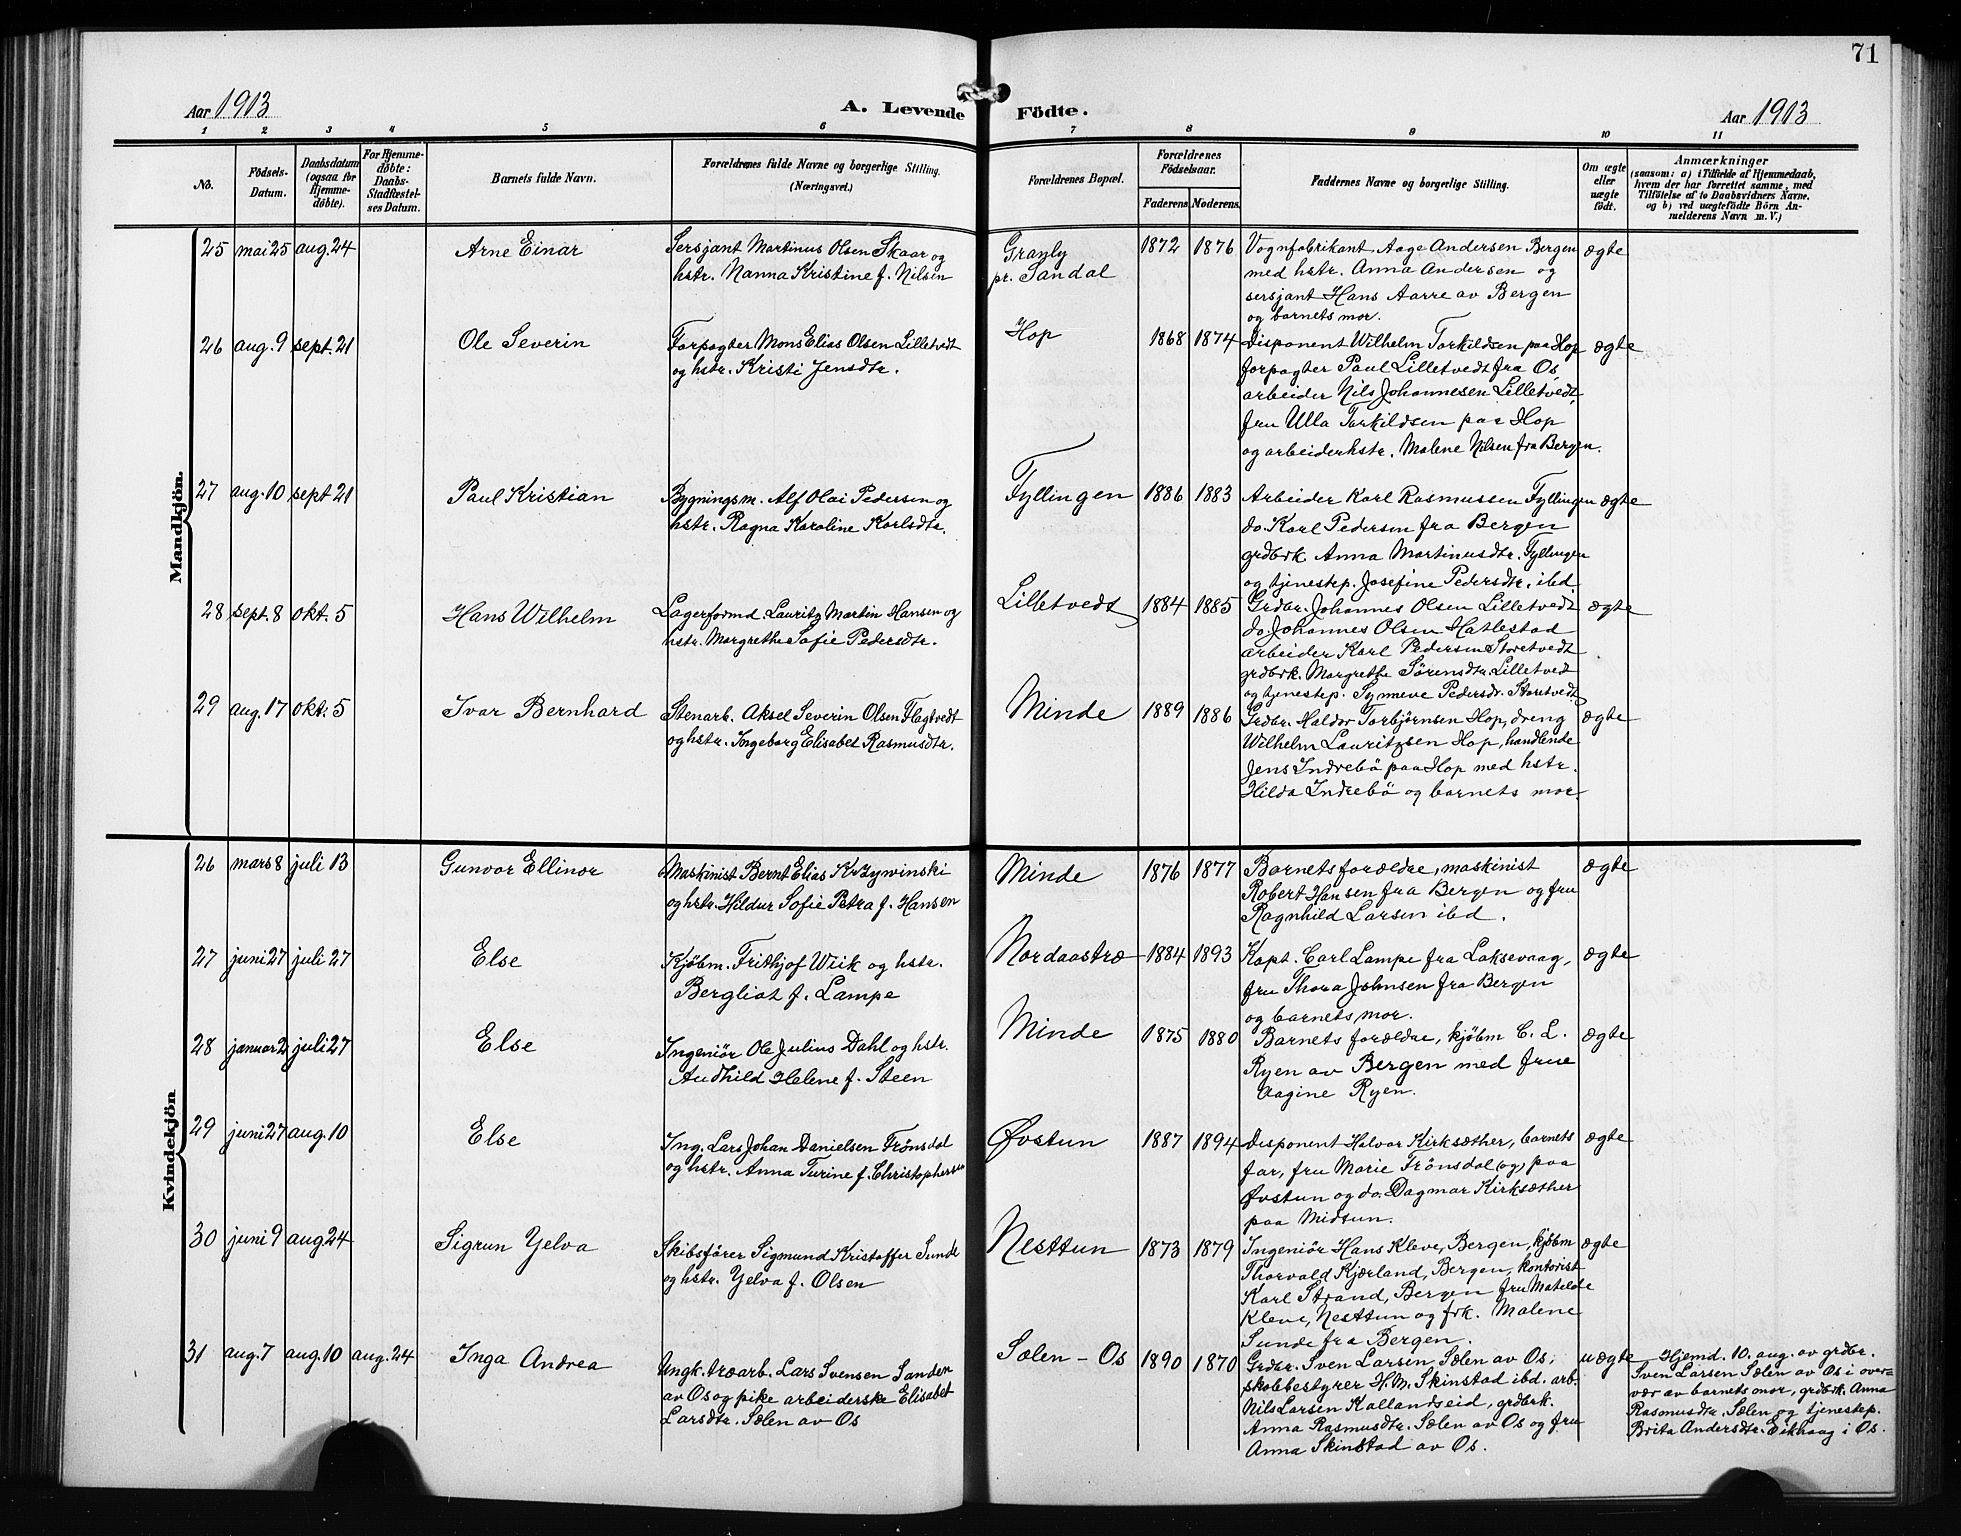 71
Aar 1913
A. Levende Födte.
Aar 1913
1 2 3 4 5 6 7 8 9 10 11
No.
Födsels-
Datum.
Daabsdatum
(ogsaa for
Hjemme-
döbte).
For Hjemme-
döbte:
Daabs-
Stadfæstel-
ses Datum.
Barnets fulde Navn.
Forældrenes fulde Navne og borgerlige Stilling.
(Næringsvei.)
Forældrenes Bopæl.
Forældrenes
Födselsaar.
Faderens Moderens.
Faddernes Navne og borgerlige Stilling.
Om ægte
eller
uægte
födt.
Anmærkninger
(saasom: a) i Tilfælde af Hjemmedaab,
hvem der har forrettet samme, med
Tilföielse af to Daabsvidners Navne,
og b) ved uægtefödte Börn An-
melderens Navn m. V.)
Mandkjön.
25 mai 25 aug. 24 Arne Einar
Sersjant Martinus Olsen Skaar og
hstr. Nanna Kristine f. Nilsen
Granly
pr. Sandal
1872 1876
Vognfabrikant Aage Andersen Bergen
med hstr. Anna Andersen og
sersjant Hans Aarre av Bergen
og barnets mor.
ægte
26 aug. 9 sept. 21 Ole Severin
Forpagter Mons Elias Olsen Lilletvedt
og hstr. Kristi Jensdtr.
Hop
1868 1874
Disponent Wilhelm Torkildsen paa Hop
forpagter Paul Lilletvedt fra Os
arbeider Nils Johannesen Lilletvedt,
fru Ulla Torkildsen paa Hop
og arbeiderhstr. Malene Nilsen fra Bergen.
ægte
27 aug. 10 sept 21 Paul Kristian
Bygningsm. Alf Olai Pedersen og
hstr. Ragna Karoline Karlsdtr.
Fyllingen
1886 1883
Arbeider Karl Rasmussen Fyllingen
do. Karl Pedersen fra Bergen
grdbrk Anna Martinusdtr. Fyllingen
og tjenestep. Josefine Pedersdtr. ibd.
ægte
28 sept. 8 okt. 5 Hans Wilhelm
Lagerformd. Lauritz Martin Hansen og
hstr. Margrethe Sofie Pedersdtr.
Lilletvedt
1884 1885
Grdbr. Johannes Olsen Lilletvedt
do Johannes Olsen Hatlestad
arbeider Karl Pedersen Storetvedt
grdbrk. Margrethe Sørensdtr. Lilletvedt
og tjenestep. Synneve Pedersdr. Storetvedt
ægte
29 aug. 17 okt. 5 Ivar Bernhard
Stenarb. Aksel Severin Olsen Flagtvedt
og hstr. Ingeborg Elisabet Rasmusdtr.
Minde
1889 1886
Grdbr. Haldor Torbjørnsen Hop, dreng
Wilhelm Lauritzsen Hop, handlende
Jens Indrebö paa Hop med hstr.
Hilda Indrebö og barnets mor.
ægte
Kvindekjön
26 mars 8 juli 13 Gunvor Ellinor
Maskinist Bernt Elias Krzywinski
og hstr. Hildur Sofie Petra f. Hansen
Minde
1876 1877
Barnets forældre, maskinist
Robert Hansen fra Bergen og fru
Ragnhild Larsen ibd.
ægte
27 juni 27 juli 27 Else
Kjøbm. Frithjof Wiik og hstr.
Bergliot f. Lampe
Nordaastræ
1884 1893
Kapt. Carl Lampe fra Laksevaag,
fru Thora Johnsen fra Bergen
og barnets mor.
ægte
28 januar 2 juli 27 Else
Ingeniör Ole Julius Dahl og hstr.
Audhild Helene f. Steen
Minde
1875 1880
Barnets forældre, kjøbm C. L.
Ryen av Bergen med frue
Aagine Ryen.
ægte
29 juni 27 aug. 10 Else
Ing. Lars Johan Danielsen Frønsdal
og hstr. Anna Turine f. Christophersen
Øvstun
1887 1894
Disponent Halvor Kirksæther, barnets
far, fru Marie Frönsdal (og) paa
Øvstun og do. Dagmar Kirksæther
paa Midtun.
ægte
30 juni 9 aug 24 Sigrun Yelva
Skibsfører Sigmund Kristoffer Sunde
og hstr. Yelva f. Olsen
Nesttun
1873 1879
Ingeniör Hans Kleve, Bergen, kjøbm
Thorvald Kjærland, Bergen, kontorist
Karl Strand, Bergen fru Matilde
Kleve, Nesttun og frk. Malene
Sunde fra Bergen.
ægte
31 aug. 7 aug. 10 aug. 24 Inga Andrea
Ungk. træarb. Lars Svensen Sanden
av Os og pike arbeiderske Elisabet
Larsdtr. Sælen av Os
Sælen - Os
1890 1870
Grdbr. Sven Larsen Sælen av Os,
skolebestyrer H. M. Skinstad ibd. arb.
Nils Larsen Kallandseid, grdbrk.
Anna Rasmusdtr. Sælen av Os og fru
Anna Skinstad av Os.
uægte
Hjemd. 10. aug. av grdbr.
Sven Larsen Sælen av Os i over-
vær av barnets mor, grdbrk. Anna
Rasmusdtr. Sælen og tjenestep.
Brita Andersdtr. Eikhaug i Os.